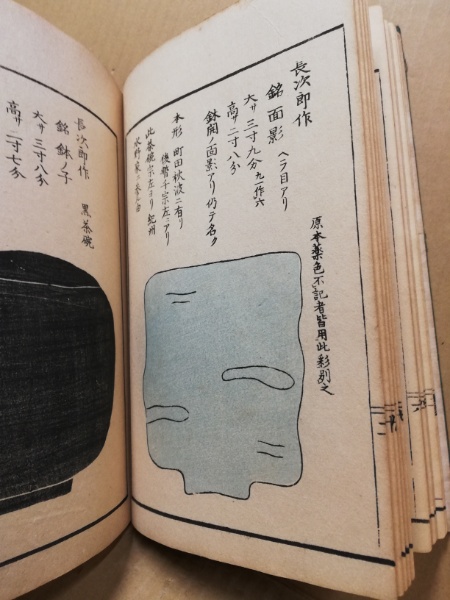 長次郎作
銘 面影 ヘラ目アリ
大サ 三寸九分 九一作六
高サ 二寸八分
鉢開ノ面影アリ仍テ名ク
本形 町田秋波ニ有リ
後哲千宗左ニアリ
此茶碗宗左ヨリ紀州
原本薬色不記者皆用此彩別之
長次郎作 黒茶碗
銘 鉢ノ子
大サ 三寸八分
高サ 二寸七分